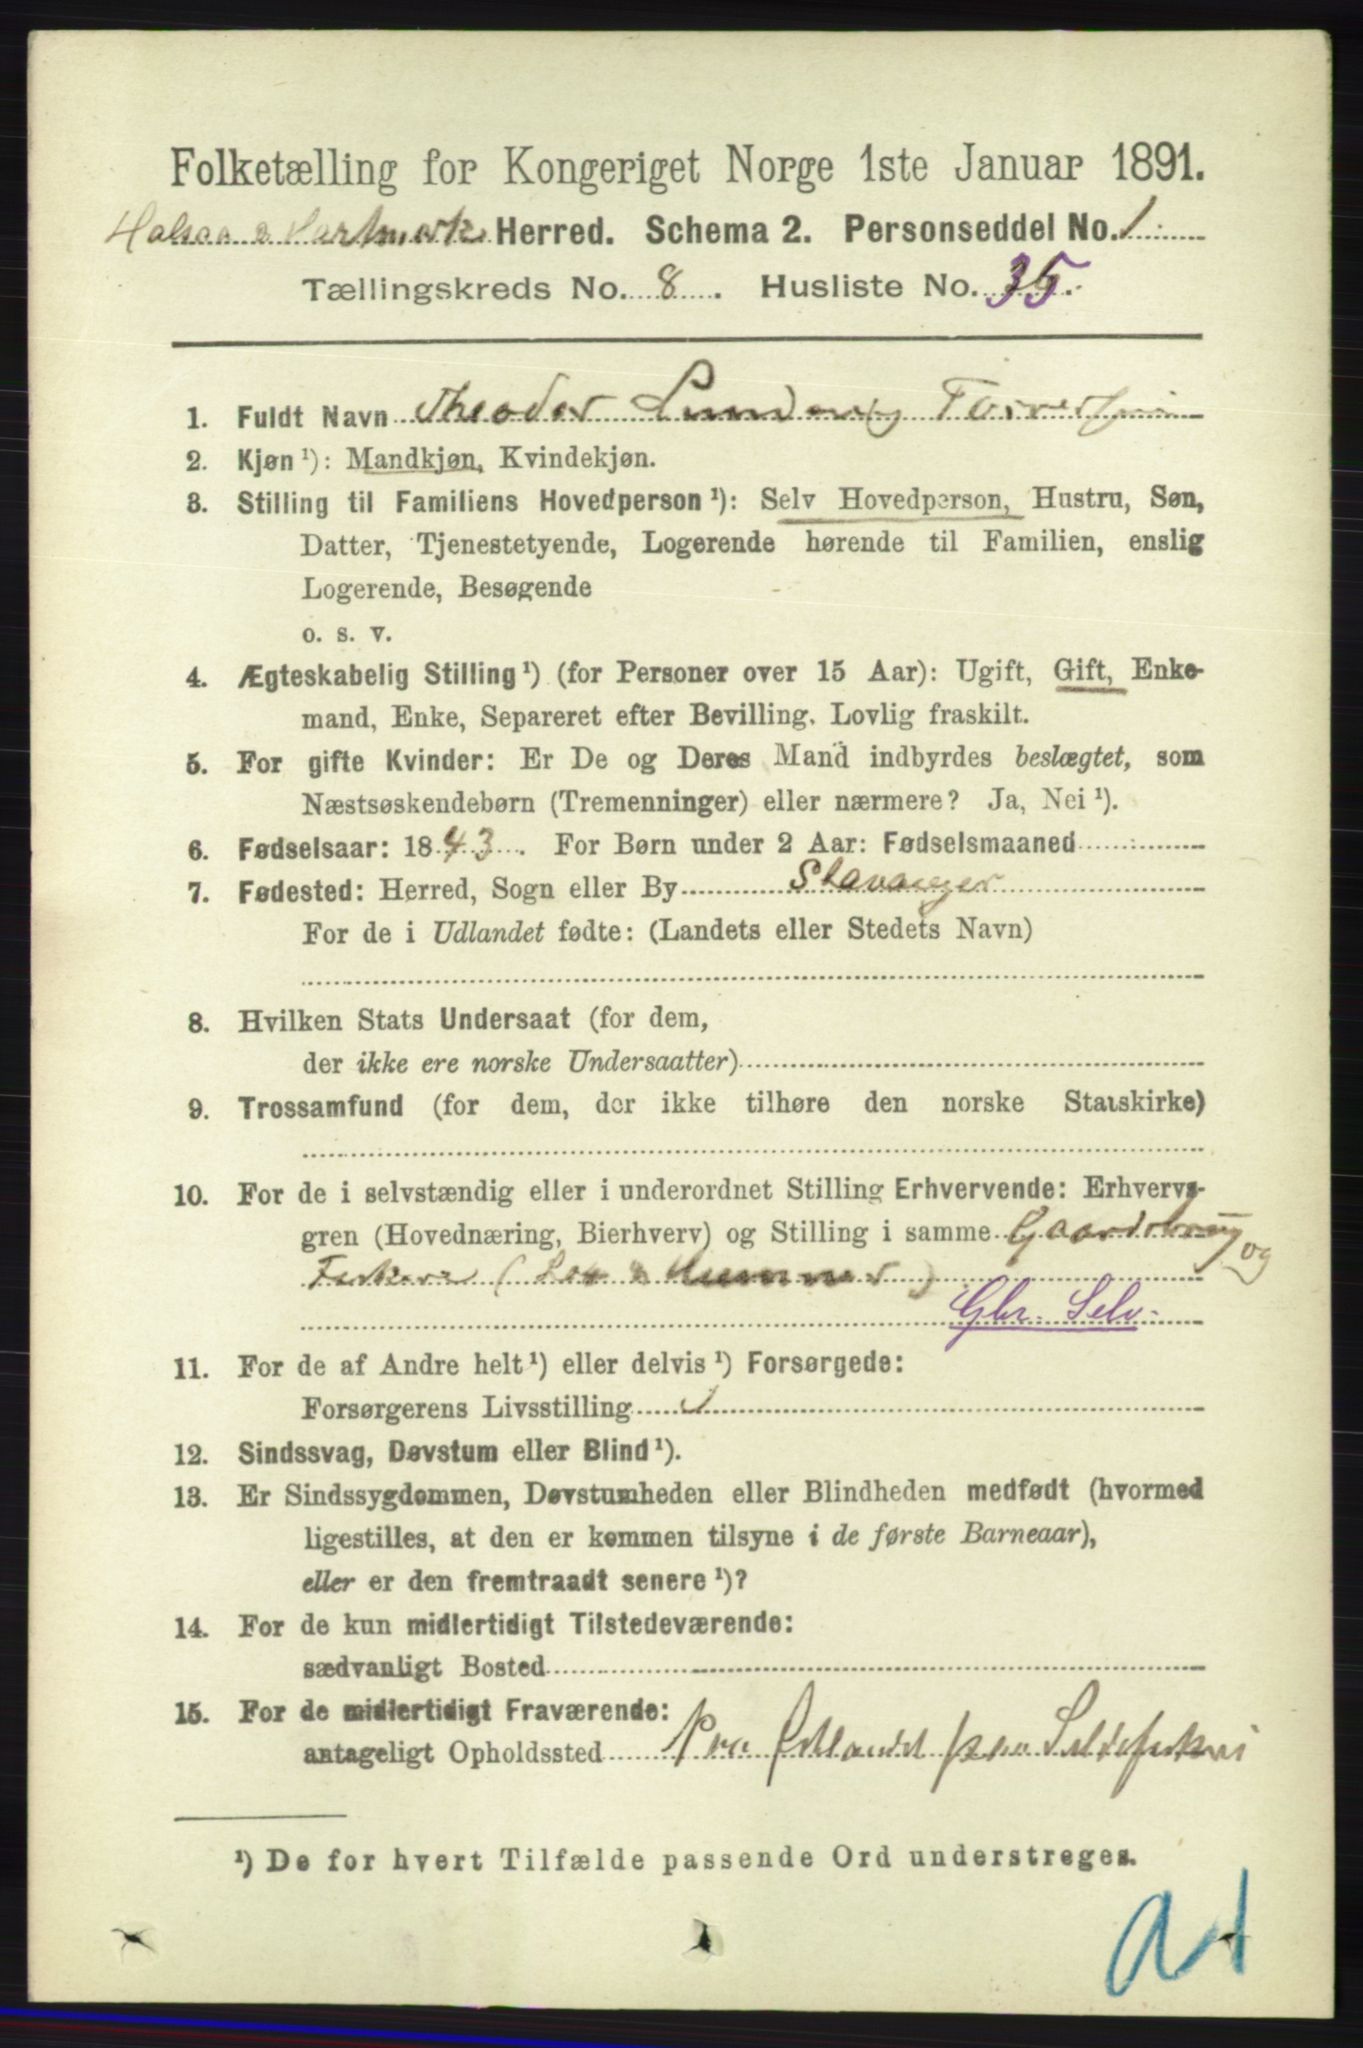 Folketælling for Kongeriget Norge 1ste Januar 1891.
Halsaa & Hartmark Herred. Schema 2. Personseddel No. 1
Tællingskreds No. 8. Husliste No. 35.
1. Fuldt Navn Theodor
2. Kjøn ¹): Mandkjøn, Kvindekjøn.
3. Stilling til Familiens Hovedperson ¹): Selv Hovedperson, Hustru, Søn,
Datter, Tjenestetyende, Logerende hørende til Familien, enslig
Logerende, Besøgende
o. s. v.
4. Ægteskabelig Stilling ¹) (for Personer over 15 Aar): Ugift, Gift, Enke-
mand, Enke, Separeret efter Bevilling. Lovlig fraskilt.
5. For gifte Kvinder: Er De og Deres Mand indbyrdes beslægtet, som
Næstsøskendebørn (Tremenninger) eller nærmere? Ja, Nei ¹).
6. Fødselsaar: 1843. For Børn under 2 Aar: Fødselsmaaned
7. Fødested: Herred, Sogn eller By Stavanger
For de i Udlandet fødte: (Landets eller Stedets Navn)
8. Hvilken Stats Undersaat (for dem,
der ikke ere norske Undersaatter)
9. Trossamfund (for dem, der ikke tilhøre den norske Statskirke)
10. For de i selvstændig eller i underordnet Stilling Erhvervende: Erhvervs-
gren (Hovednæring, Bierhverv) og Stilling i samme Gaardsbrug og
Fiskeri ( & Hummer )
Gbr. Selv.
11. For de af Andre helt ¹) eller delvis ¹) Forsørgede:
Forsørgerens Livsstilling
12. Sindssvag, Døvstum eller Blind ¹).
13. Er Sindssygdommen, Døvstumheden eller Blindheden medfødt (hvormed
ligestilles, at den er kommen tilsyne i de første Barneaar),
eller er den fremtraadt senere ¹)?
14. For de kun midlertidigt Tilstedeværende:
sædvanligt Bosted
15. For de midlertidigt Fraværende:
antageligt Opholdssted paa Sildefiskeri
¹) De for hvert Tilfælde passende Ord understreges.